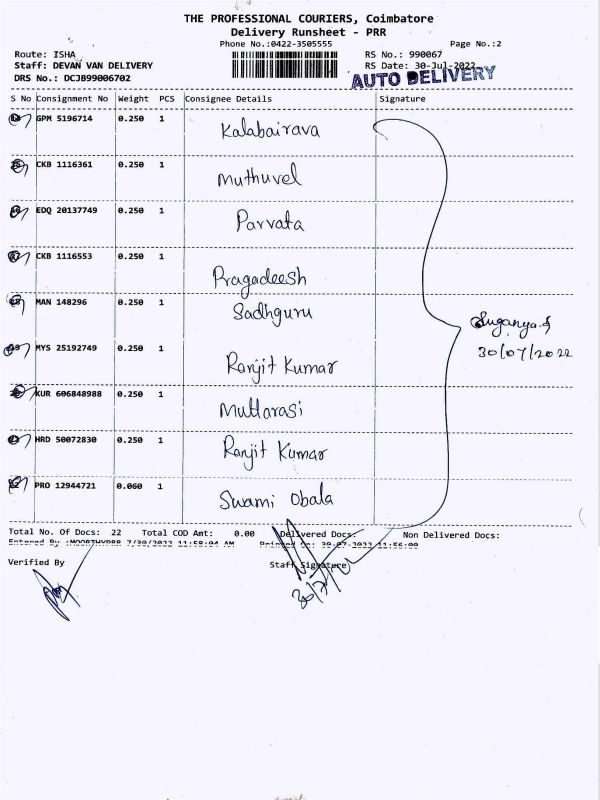 THE PROFESSIONAL COURIERS, Coimbatore
Delivery Runsheet - PRR
Phone No.:0422-3505555 Page No.:2
Route: ISHA RS No.: 990067
Staff: DEVAN VAN DELIVERY RS Date: 30-Jul-2022
DRS No.: DCJB99006702 AUTO DELIVERY
S No Consignment No Weight PCS Consignee Details Signature
GPM 5196714 0.250 1 Kalabairava
CKB 1116361 0.250 1 Muthuvel
EDQ 20137749 0.250 1 Parvata
CKB 1116553 0.250 1 Pragadeesh
MAN 148296 0.250 1 Sadhguru
Suganya.S
MYS 25192749 0.250 1 Ranjit Kumar 30/07/2022
KUR 606848988 0.250 1 Muttarasi
HRD 50072830 0.250 1 Ranjit Kumar
PRO 12944721 0.060 1 Swami Obala
Total No. Of Docs: 22 Total COD Amt: 0.00 Delivered Docs: Non Delivered Docs:
Entered By 7/30/2022 11:58:04 AM 11:56:00
Verified By Staff Signature